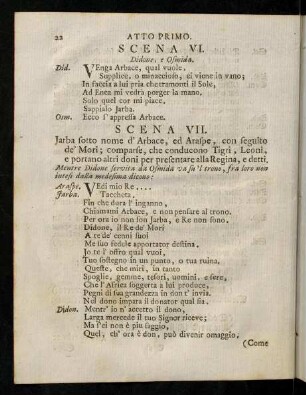 22 ATTO PRIMO.
SCENA VI.
Didone, e Osmida.
Did. VEnga Arbace, qual vuole,
Supplice, o minaccioso, ei viene in vano;
In faccia a lui pria che tramonti il Sole,
Ad Enea mi vedrà porger la mano.
Solo quel cor mi piace.
Sappialo Jarba.
Osm. Ecco s'appressa Arbace.
SCENA VII.
Jarba sotto nome d'Arbace, ed Araspe, con seguito
de' Mori; comparse, che conducono Tigri, Leoni,
e portano altri doni per presentare alla Regina, e detti.
Mentre Didone servita da Osmida va su 'l trono, fra loro non
intesi dalla medesima dicono:
Araspe. VEdi mio Re....
Jarba. Taccheta.
Fin che dura l'inganno,
Chiamami Arbace, e non pensare al trono.
Per ora io non son Jarba, e Re non sono.
Didone, il Re de' Mori
A te de' cenni suoi
Me suo fedele apportator destina.
Jo te l'offro qual vuoi,
Tuo sostegno in un punto, o tua ruina.
Queste, che miri, in tanto
Spoglie, gemme, tesori, uomini, e fere,
Che l'Africa soggetta a lui produce,
Pegni di sua grandezza in don t'invia.
Nel dono impara il donator qual sia.
Didon. Mentr' io n' accetto il dono,
Larga mercede il tuo Signor riceve;
Ma s'ei non è più saggio,
Quel, ch' ora è don, può divenir omaggio.
(Come